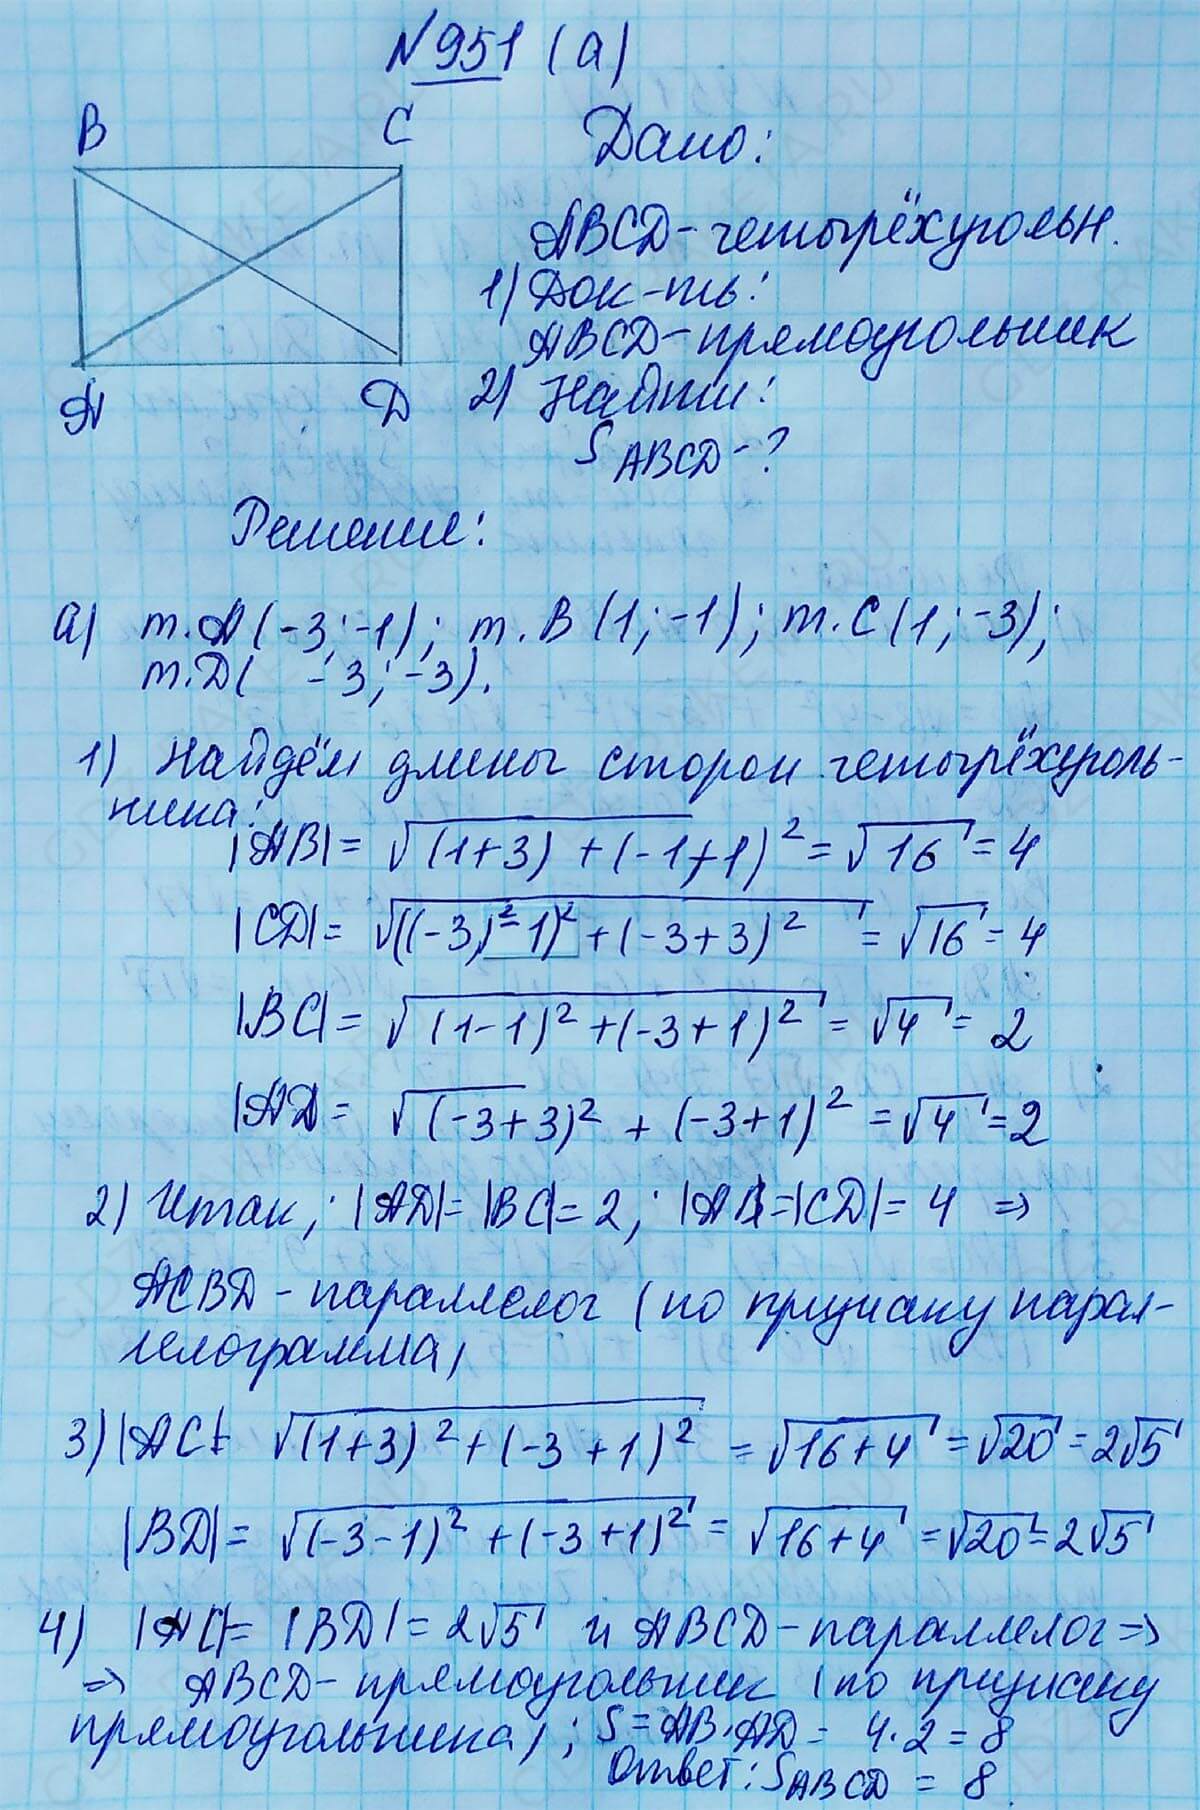 N 951 (а)
B C
A D
Дано:
ABCD - четырёхугольн.
1) Док-ть:
ABCD - прямоугольник
2) Найти:
S ABCD - ?
Решение:
а) т. A (-3; -1); т. B (1; -1); т. C (1; -3);
т. D( -3; -3).
1) Найдём длины сторон четырёхуголь-
ника:
|AB| = √(1+3) + (-1+1)² = √16 = 4
|CD| = √((-3)²-1)² + (-3+3)² = √16 = 4
|BC| = √(1-1)² + (-3+1)² = √4 = 2
|AD| = √(-3+3)² + (-3+1)² = √4 = 2
2) Итак, |AD| = |BC| = 2; |AB| = |CD| = 4 ⇒
ACBD - параллелог (по признаку парал-
лелограмма)
3) |AC| = √(1+3)² + (-3+1)² = √16+4 = √20 = 2√5
|BD| = √(-3-1)² + (-3+1)² = √16+4 = √20 = 2√5
4) |AC| = |BD| = 2√5 и ABCD - параллелог ⇒
⇒ ABCD - прямоугольник (по признаку
прямоугольника); S = AB · AD = 4 · 2 = 8
Ответ: S ABCD = 8